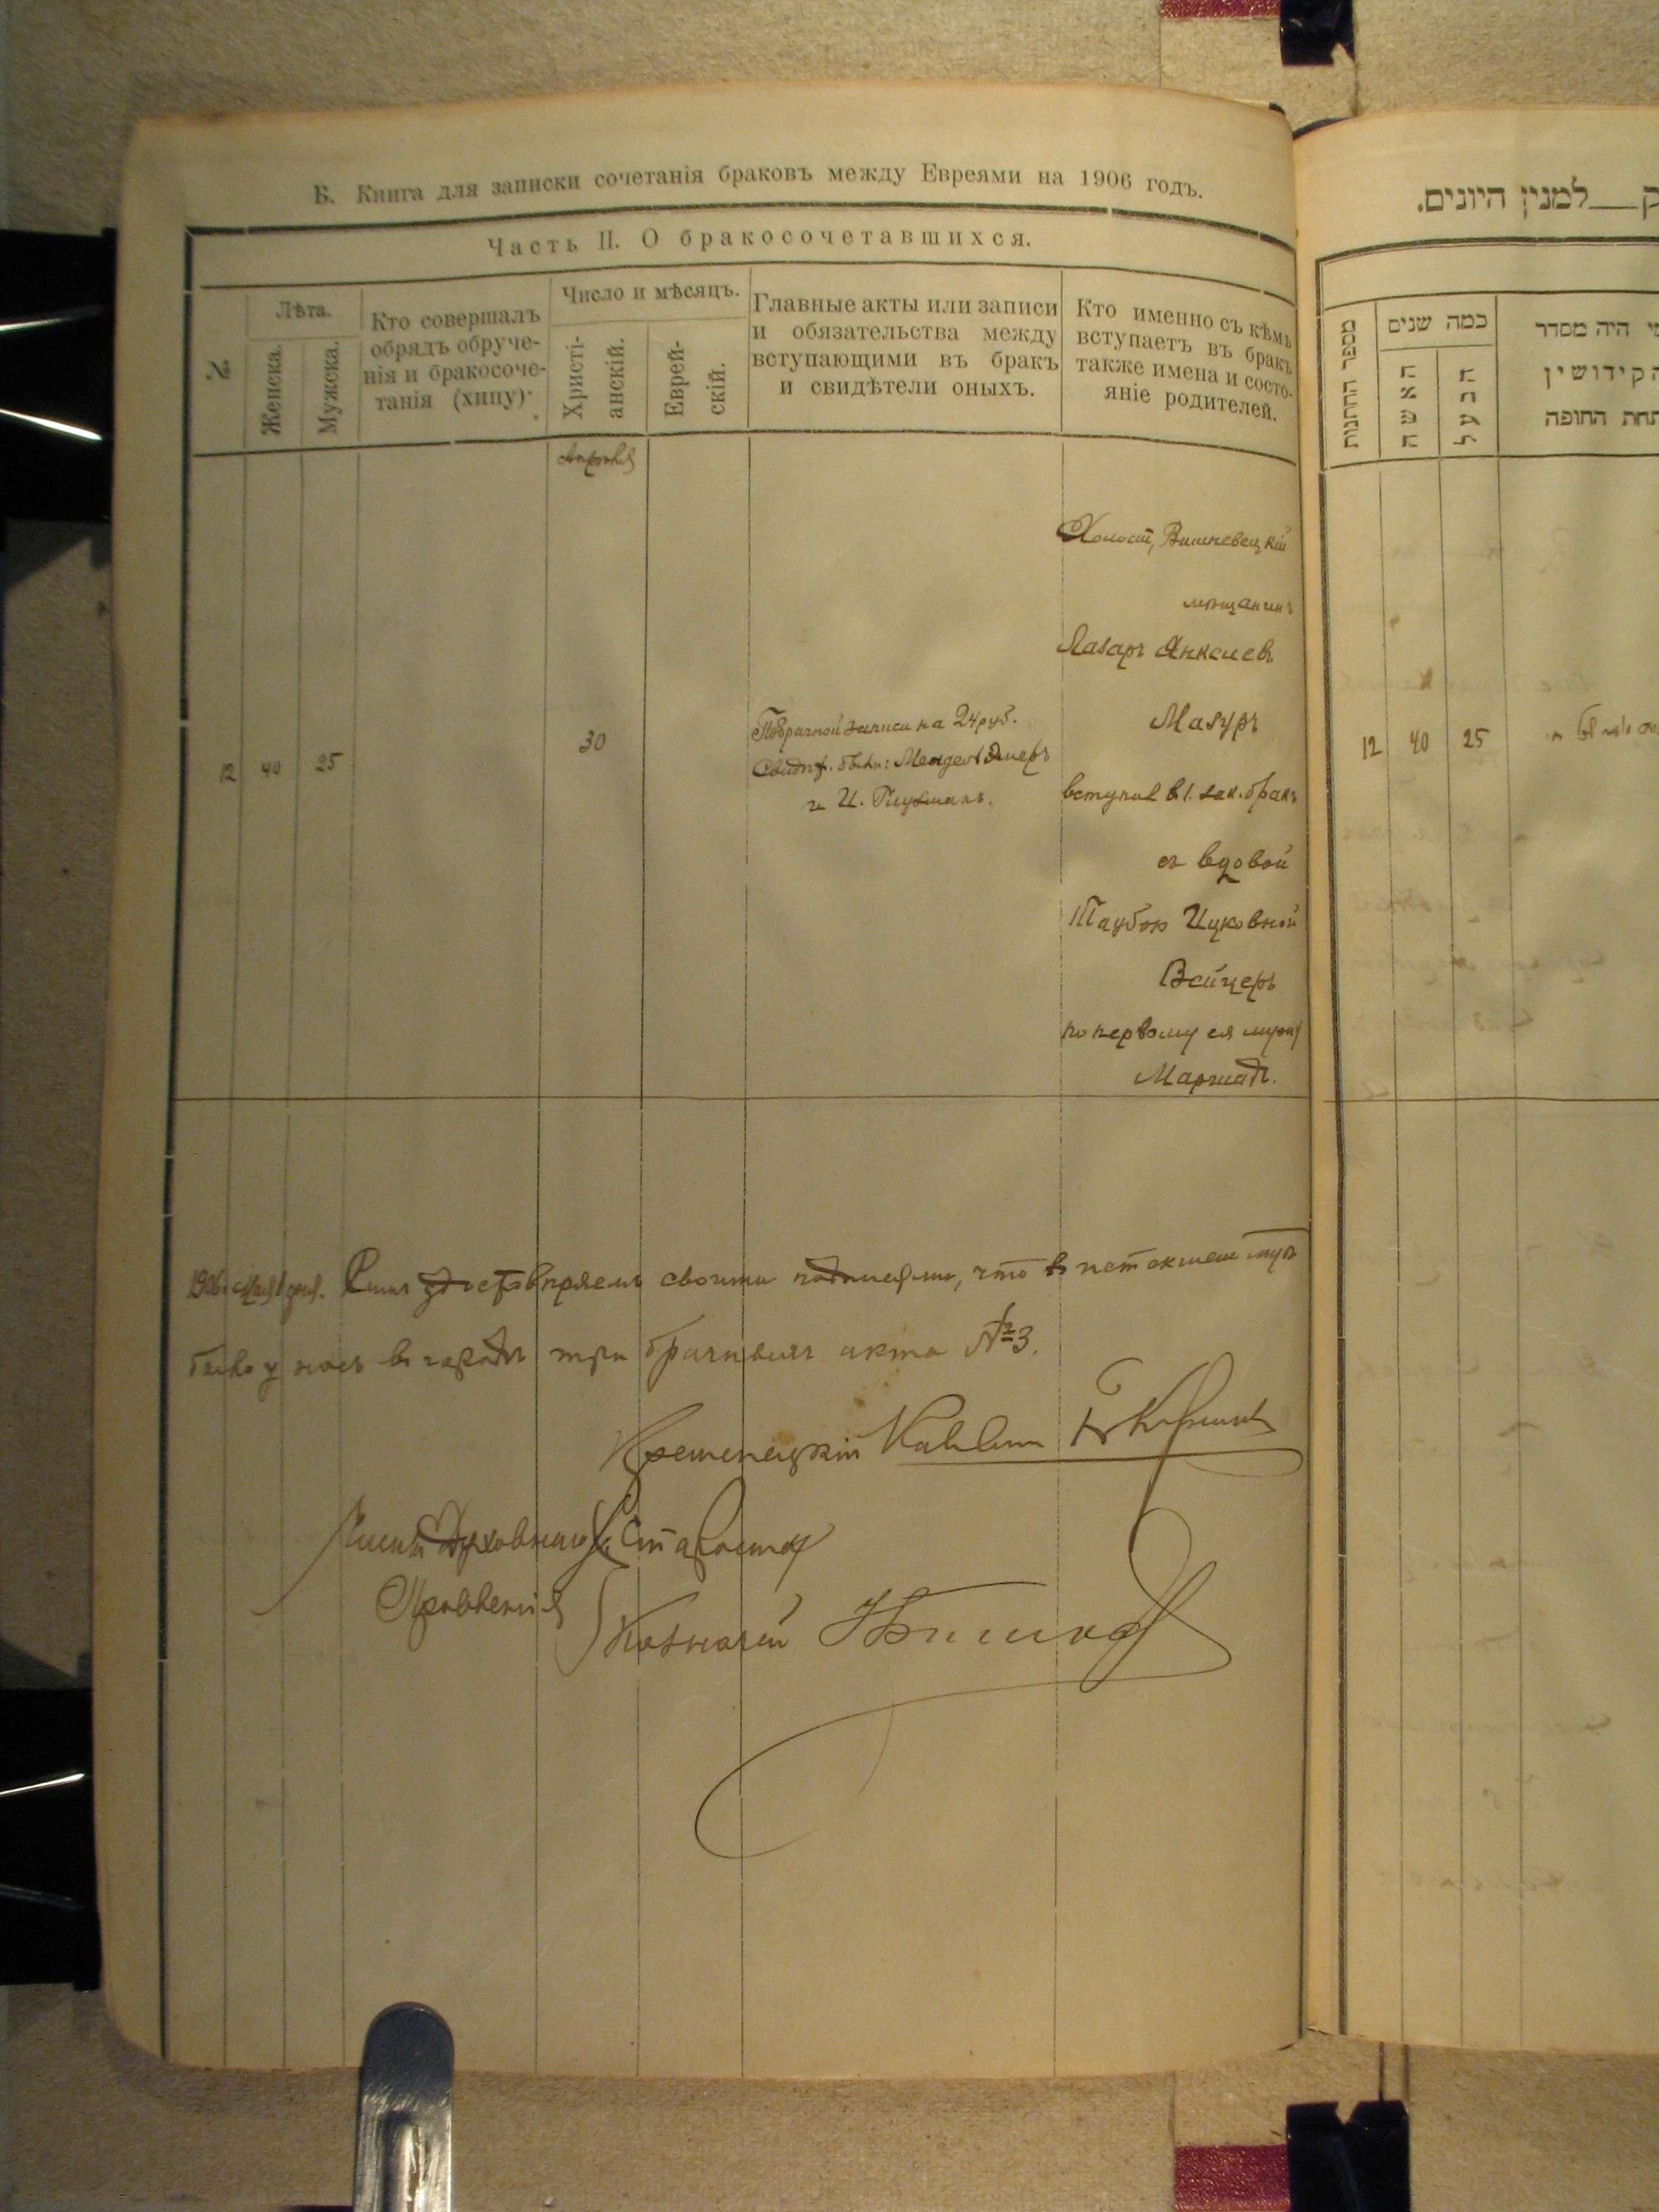 Б. Книга для записки сочетанія браковъ между Евреями на 1906 годъ.
Часть II. О бракосочетавшихся.
№
Лѣта.
Женска.
Мужска.
Кто совершалъ
обрядъ обруче-
нія и бракосоче-
танія (хипу).
Число и мѣсяцъ.
Христі-
анскій.
Еврей-
скій.
Главные акты или записи
и обязательства между
вступающими въ бракъ
и свидѣтели оныхъ.
Кто именно съ кѣмъ
вступаетъ въ бракъ
также имена и состо-
яніе родителей.
Апрѣля
12
40
25
30
По брачной записи на 24 руб.
Свидѣт. были: Мендель
и И.
Холост, Вишневецкій
мѣщанинъ
Лазарь Янкелев
Мазуръ
вступил в 1. зак. бракъ
съ вдовой
Таубою Ицковной
Вейцеръ
по первому ея мужу
1906 г. Мая 1 дня. Симъ удостовѣряемъ своими подписями, что в истекшем
было у насъ въ городѣ три брачныхъ акта № 3.
Кременецкій Раввин
Члены Духовнаго Староста
Правленія
Казначей
ק למנין היונים.
מספר החתנות
כמה שנים
האשה
הבעל
מי היה מסדר
הקידושין
תחת החופה
12
40
25